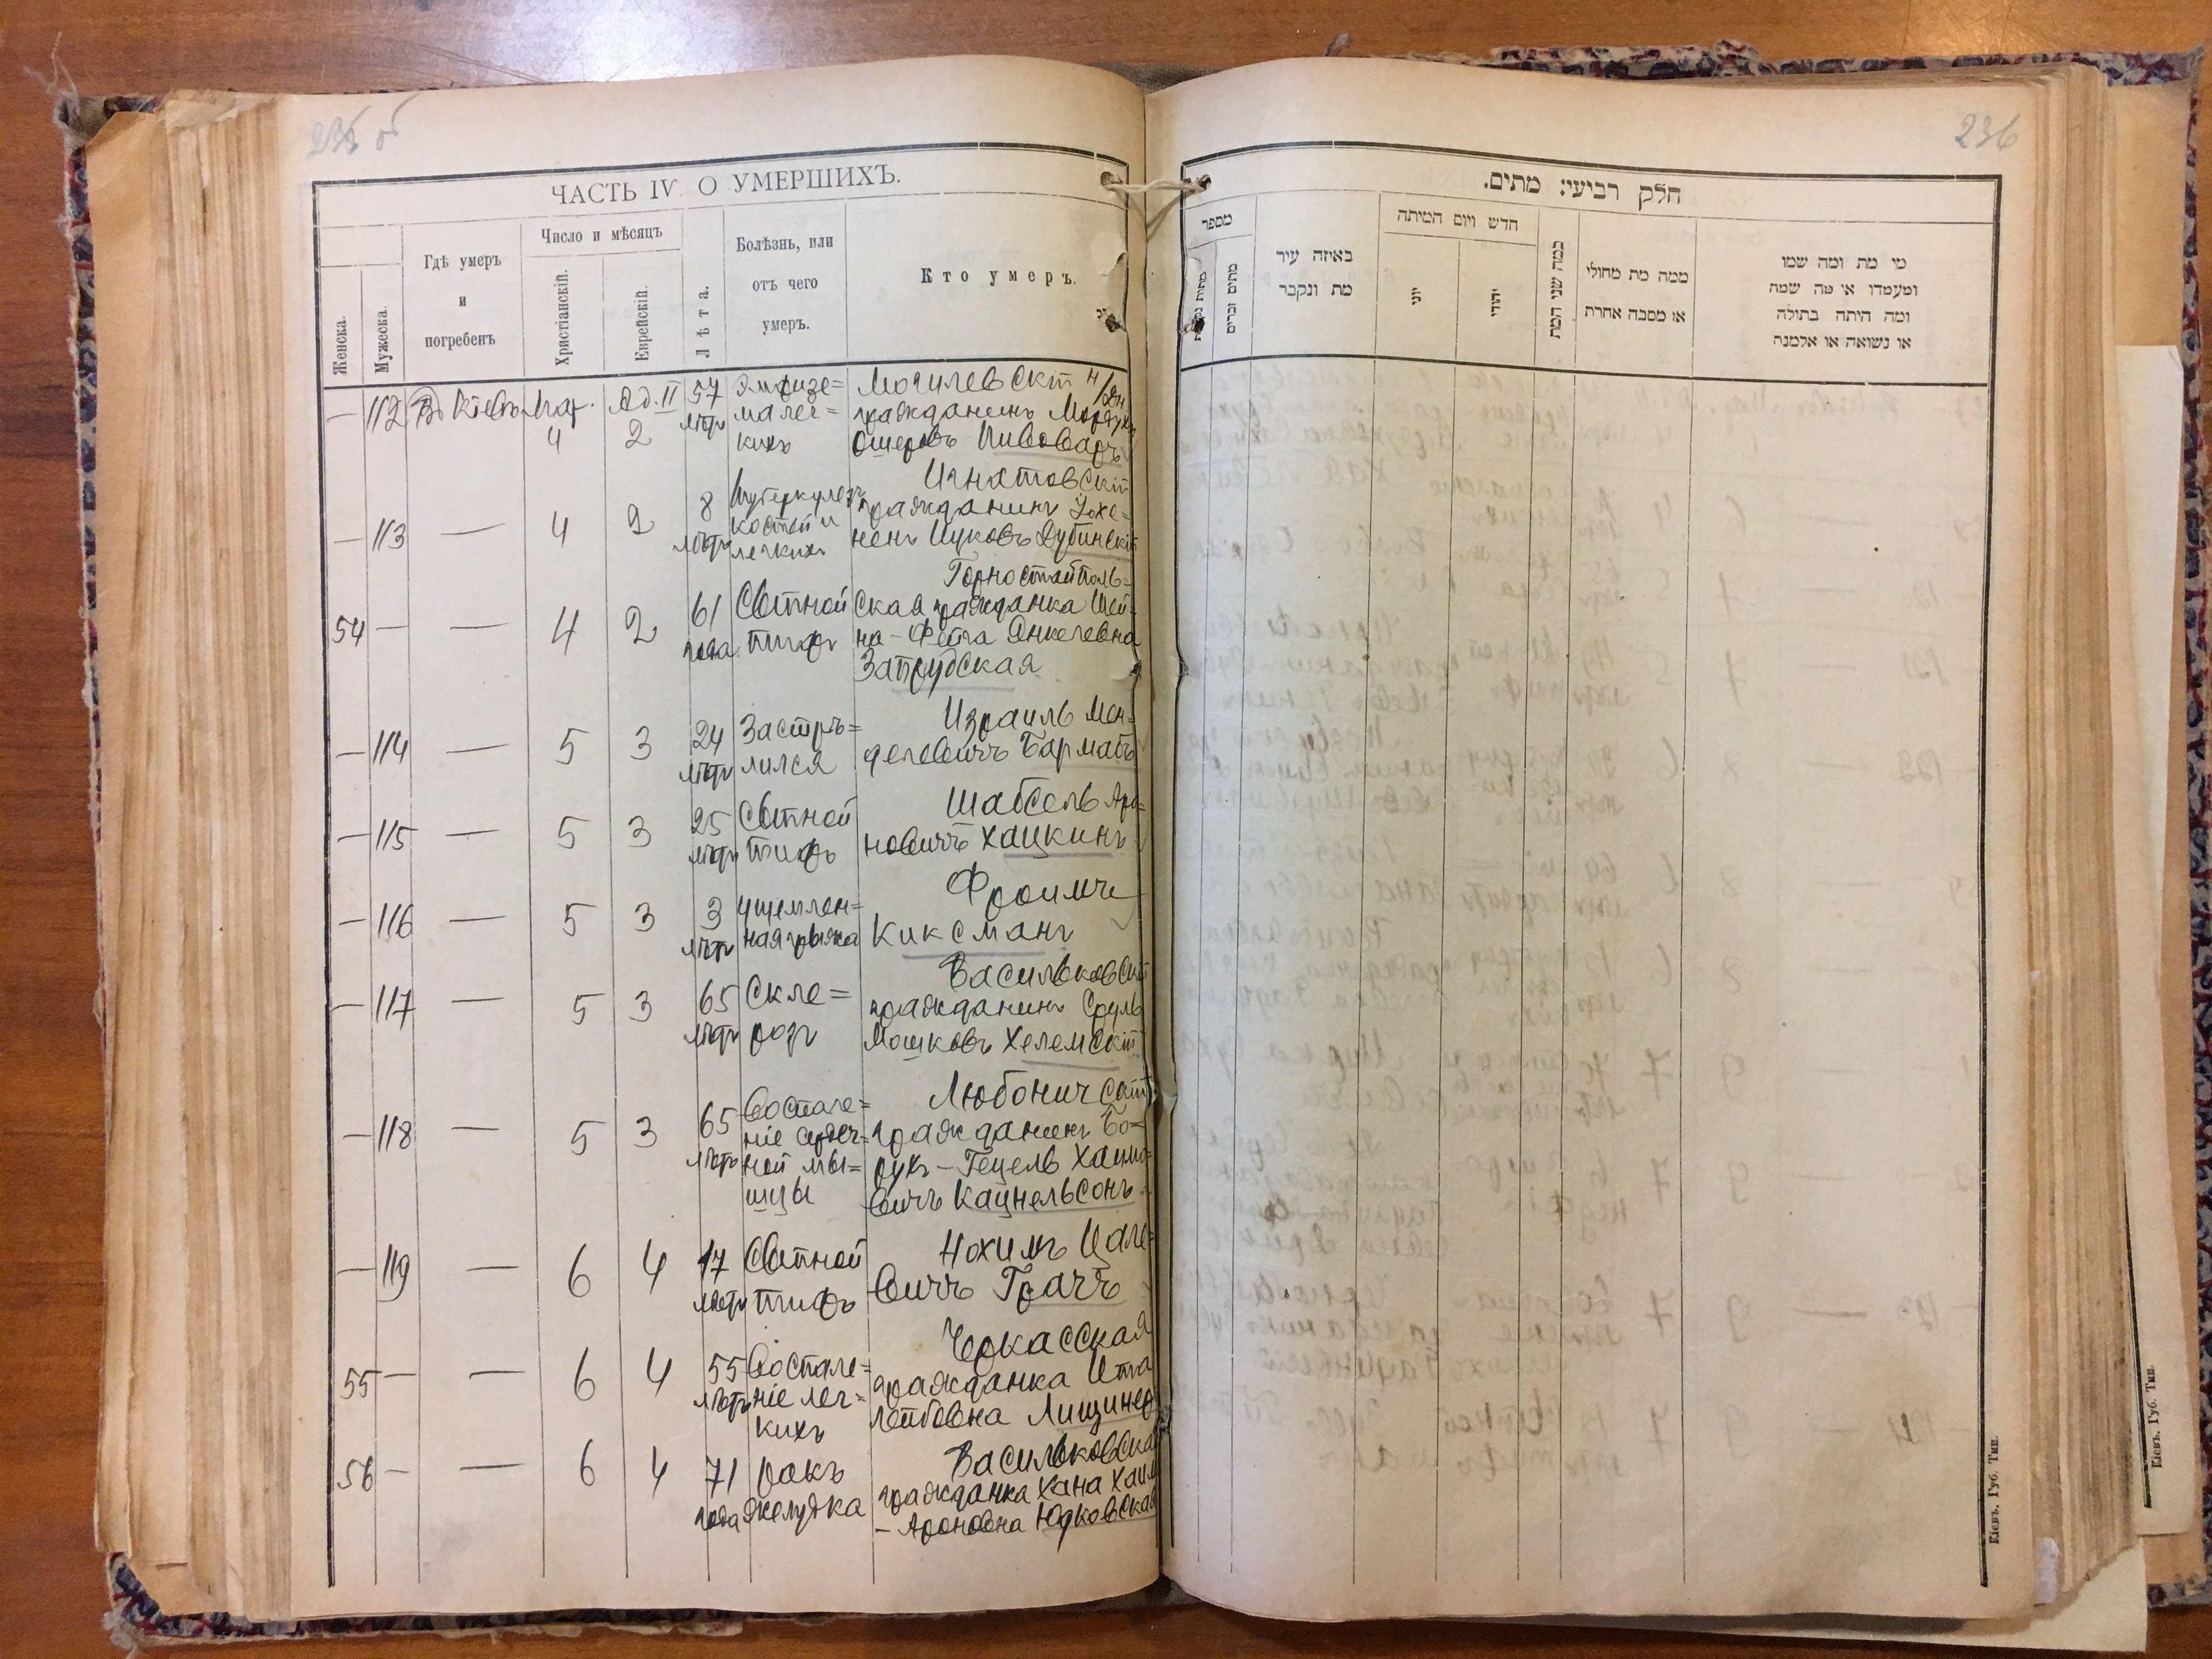 235 об
ЧАСТЬ IV. О УМЕРШИХЪ.
Женска.
Мужеска.
Гдѣ умеръ
и
погребенъ
Число и мѣсяцъ
Христіанскій.
Еврейскій.
Лѣта.
Болѣзнь, или
отъ чего
умеръ.
Кто умеръ.
— 112 Въ Кіевѣ Мар. 4 Ад. II 2 57 лѣтъ
Эмфизе=
ма лег=
кихъ
Могилевскій
гражданинъ
Ошеровъ Пивоваръ
— 113 — 4 2 8 лѣтъ
Туберкулезъ
костей и
легкихъ
Игнатовскій
гражданинъ Хохе=
нень Ицковъ Дубинскій
54 — — 4 2 61 года
Сыпной
тифъ
Горностайполь=
ская гражданка Шей=
на-Фейга Янкелевна
Затрубская
— 114 — 5 3 24 лѣтъ
Застрѣ=
лился
Израиль Мен=
делевичъ Бармашъ
— 115 — 5 3 25 лѣтъ
Сыпной
тифъ
Шабсель Аро=
новичъ Хацкинъ
— 116 — 5 3 3 лѣтъ
Ущемлен=
ная грыжа
Фроимъ
Киксманъ
— 117 — 5 3 65 лѣтъ
Скле=
розъ
Васильковскій
гражданинъ Сруль
Мошковъ Хелемскій
— 118 — 5 3 65 лѣтъ
Воспале=
ніе сердеч=
ной мы=
шцы
Любоничскій
гражданинъ Бо=
рухъ-Гецель Хаимо=
вичъ Кацнельсонъ
— 119 — 6 4 17 лѣтъ
Сыпной
тифъ
Нохимъ Цале=
вичъ Грачъ
55 — — 6 4 55 лѣтъ
Воспале=
ніе лег=
кихъ
Черкасская
гражданка Ита
Лейбовна Лищинер
56 — — 6 4 71 года
Ракъ
желудка
Васильковская
гражданка Хана Хаим
-Ароновна Юдковская
236
חלק רביעי: מתים.
מספר
מתים זכרים
באיזה עיר
מת ונקבר
חדש ויום המיתה
יוני
יהודי
כמה שני המת
ממה מת מחולי
או מסבה אחרת
מי מת ומה שמו
ומעמדו או מה שמה
ומה היתה בתולה
או נשואה או אלמנה
Кіевъ. Губ. Тип.
Кіевъ. Губ. Тип.